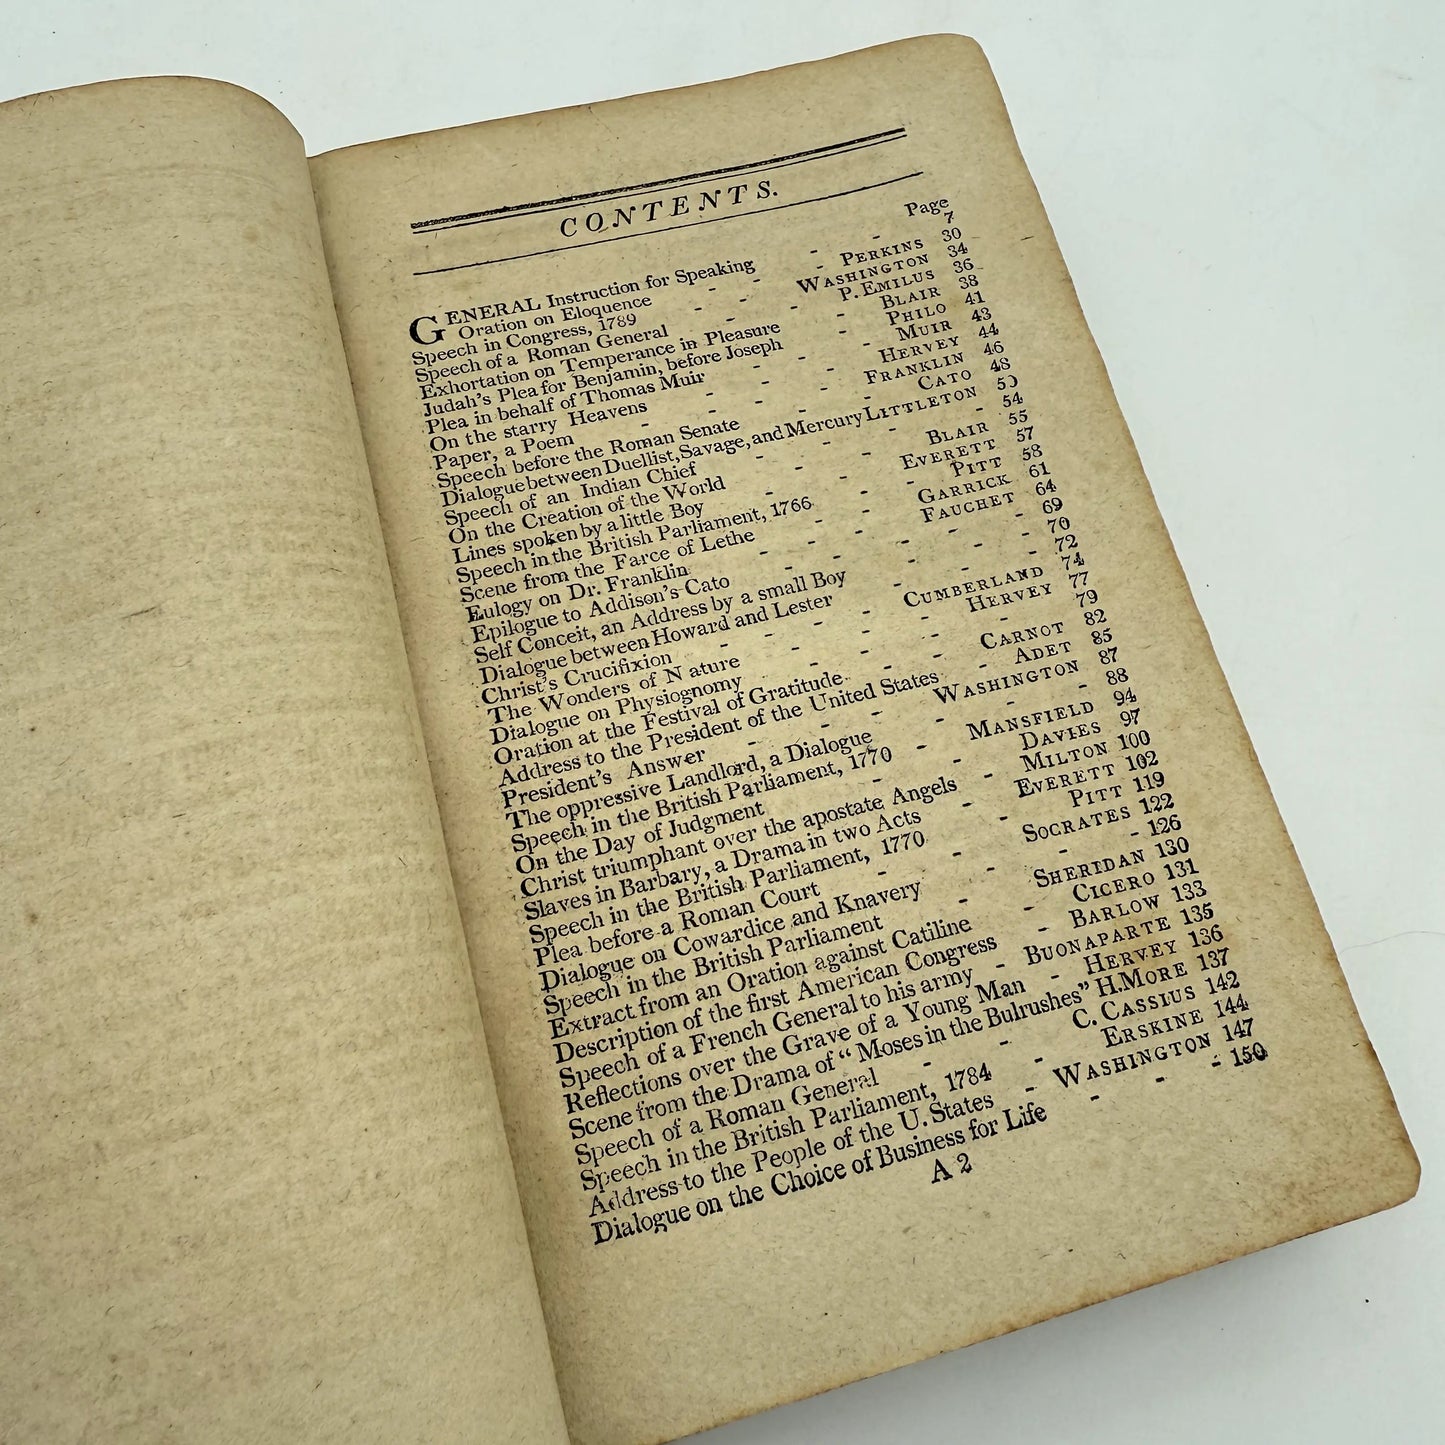 CONTENTS.
Page
GENERAL Instruction for Speaking - - 7
Oration on Eloquence - - PERKINS 30
Speech in Congress, 1789 - - WASHINGTON 34
Speech of a Roman General - - P. EMILUS 36
Exhortation on Temperance in Pleasure - BLAIR 38
Judah's Plea for Benjamin, before Joseph - PHILO 41
Plea in behalf of Thomas Muir - - MUIR 43
On the starry Heavens - - HERVEY 44
Paper, a Poem - - - FRANKLIN 46
Speech before the Roman Senate - - CATO 48
Dialogue between Duellist, Savage, and Mercury LITTLETON 50
Speech of an Indian Chief - - - 54
On the Creation of the World - - BLAIR 55
Lines spoken by a little Boy - - EVERETT 57
Speech in the British Parliament, 1766 - - PITT 58
Scene from the Farce of Lethe - - GARRICK 61
Eulogy on Dr. Franklin - - FAUCHET 64
Epilogue to Addison's Cato - - - 69
Self Conceit, an Address by a small Boy - - 70
Dialogue between Howard and Lester - - 72
Christ's Crucifixion - - CUMBERLAND 74
The Wonders of Nature - - - HERVEY 77
Dialogue on Physiognomy - - - 79
Oration at the Festival of Gratitude - - CARNOT 82
Address to the President of the United States - ADET 85
President's Answer - - - WASHINGTON 87
The oppressive Landlord, a Dialogue - - - 88
Speech in the British Parliament, 1770 - MANSFIELD 94
On the Day of Judgment - - DAVIES 97
Christ triumphant over the apostate Angels - MILTON 100
Slaves in Barbary, a Drama in two Acts - EVERETT 102
Speech in the British Parliament, 1770 - PITT 119
Plea before a Roman Court - - SOCRATES 122
Dialogue on Cowardice and Knavery - - - 126
Speech in the British Parliament - - SHERIDAN 130
Extract from an Oration against Catiline - CICERO 131
Description of the first American Congress - BARLOW 133
Speech of a French General to his army - BUONAPARTE 135
Reflections over the Grave of a Young Man - HERVEY 136
Scene from the Drama of "Moses in the Bulrushes" H. MORE 137
Speech of a Roman General - - C. CASSIUS 142
Speech in the British Parliament, 1784 - ERSKINE 144
Address to the People of the U. States - WASHINGTON 147
Dialogue on the Choice of Business for Life - - - 150
A 2